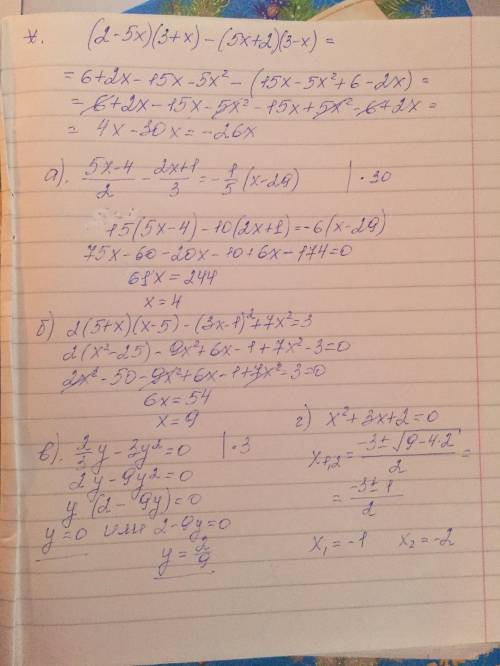 ж. (2-5x)(3+x)-(5x+2)(3-x)=
=6+2x-15x-5x²-(15x-5x²+6-2x)=
=6+2x-15x-5x²-15x+5x²-6+2x=
=4x-30x=-26x
а). (5x-4)/2 - (2x+1)/3 = -1/5(x-29) | ·30
15(5x-4)-10(2x+1)=-6(x-29)
75x-60-20x-10+6x-174=0
61x=244
x=4
б) 2(5+x)(x-5)-(3x-1)²+7x²=3
2(x²-25)-9x²+6x-1+7x²-3=0
2x²-50-9x²+6x-1+7x²-3=0
6x=54
x=9
в). 2/3y-3y²=0 | ·3
2y-9y²=0
y(2-9y)=0
y=0 или 2-9y=0
y=2/9
г) x²+3x+2=0
x₁,₂=(-3±√9-4·2)/2=
=(-3±1)/2
x₁=-1 x₂=-2